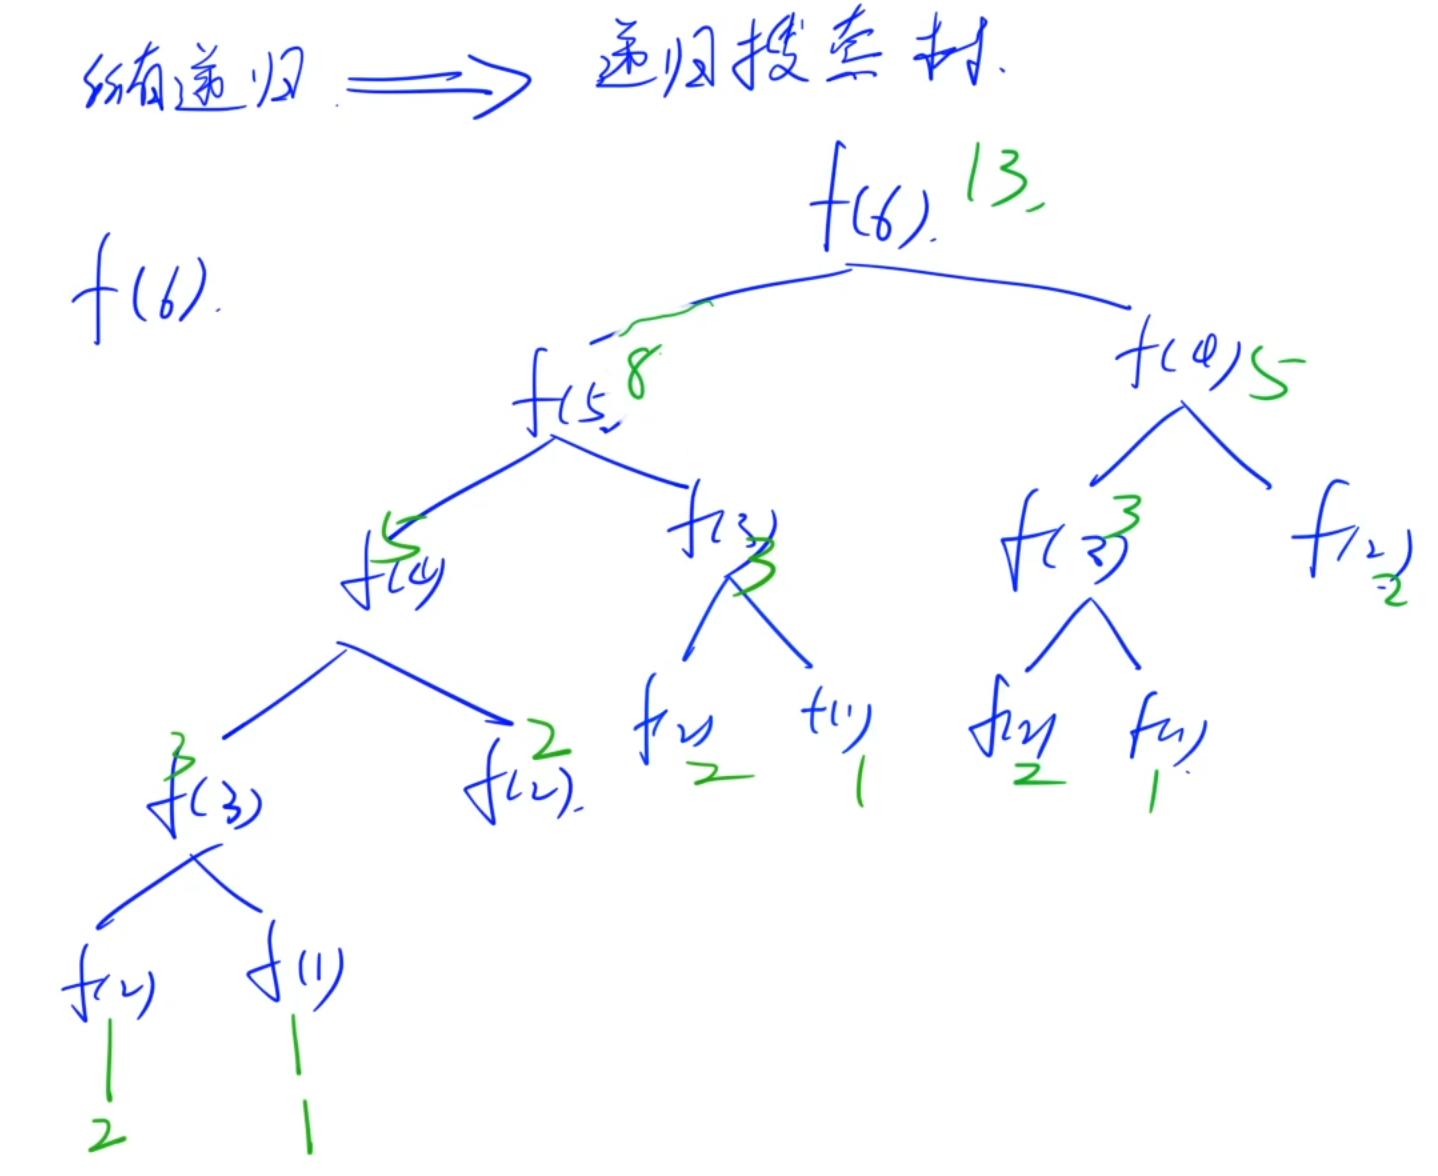 所有递归 ⟹ 递归搜索树.
f(6). 13.
f(6).
f(5) 8 f(4) 5
5 f(4) f(3) 3 f(3) 3 f(2) 2
3 f(3) 2 f(2). f(2) 2 f(1) 1 f(2) 2 f(1) 1
f(2) f(1)
2 1